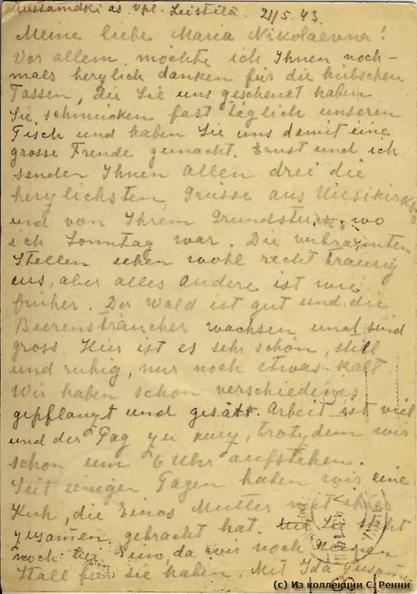 21/5. 43.
Meine liebe Maria Nikolaevna!
Vor allem möchte ich Ihnen noch-
mals herzlich danken für die hübschen
Tassen, die Sie uns geschenkt haben
Sie schmücken fast täglich unseren
Tisch und haben Sie uns damit eine
grosse Freude gemacht. Ernst und ich
senden Ihnen allen drei die
herzlichsten Grüsse aus
und von Ihrem Grundstück, wo
ich Sonntag war. Die verbrannten
Stellen sehen wohl recht traurig
aus, aber alles Andere ist wie
früher. Der Wald ist gut und die
Beerensträucher wachsen und sind
gross. Hier ist es sehr schön, still
und ruhig, nur noch etwas kalt
Wir haben schon verschiedenes
gepflanzt und gesät. Arbeit ist viel
und der Tag zu kurz, trotzdem wir
schon um 6 Uhr aufstehen.
Seit einigen Tagen haben wir eine
Kuh, die Einos Mutter mit
zusamen gebracht hat. Sie steht
noch bei Eino, da wir noch keinen
Stall für sie haben. Mit Ida zusamen
(c) Из коллекции С. Ренни